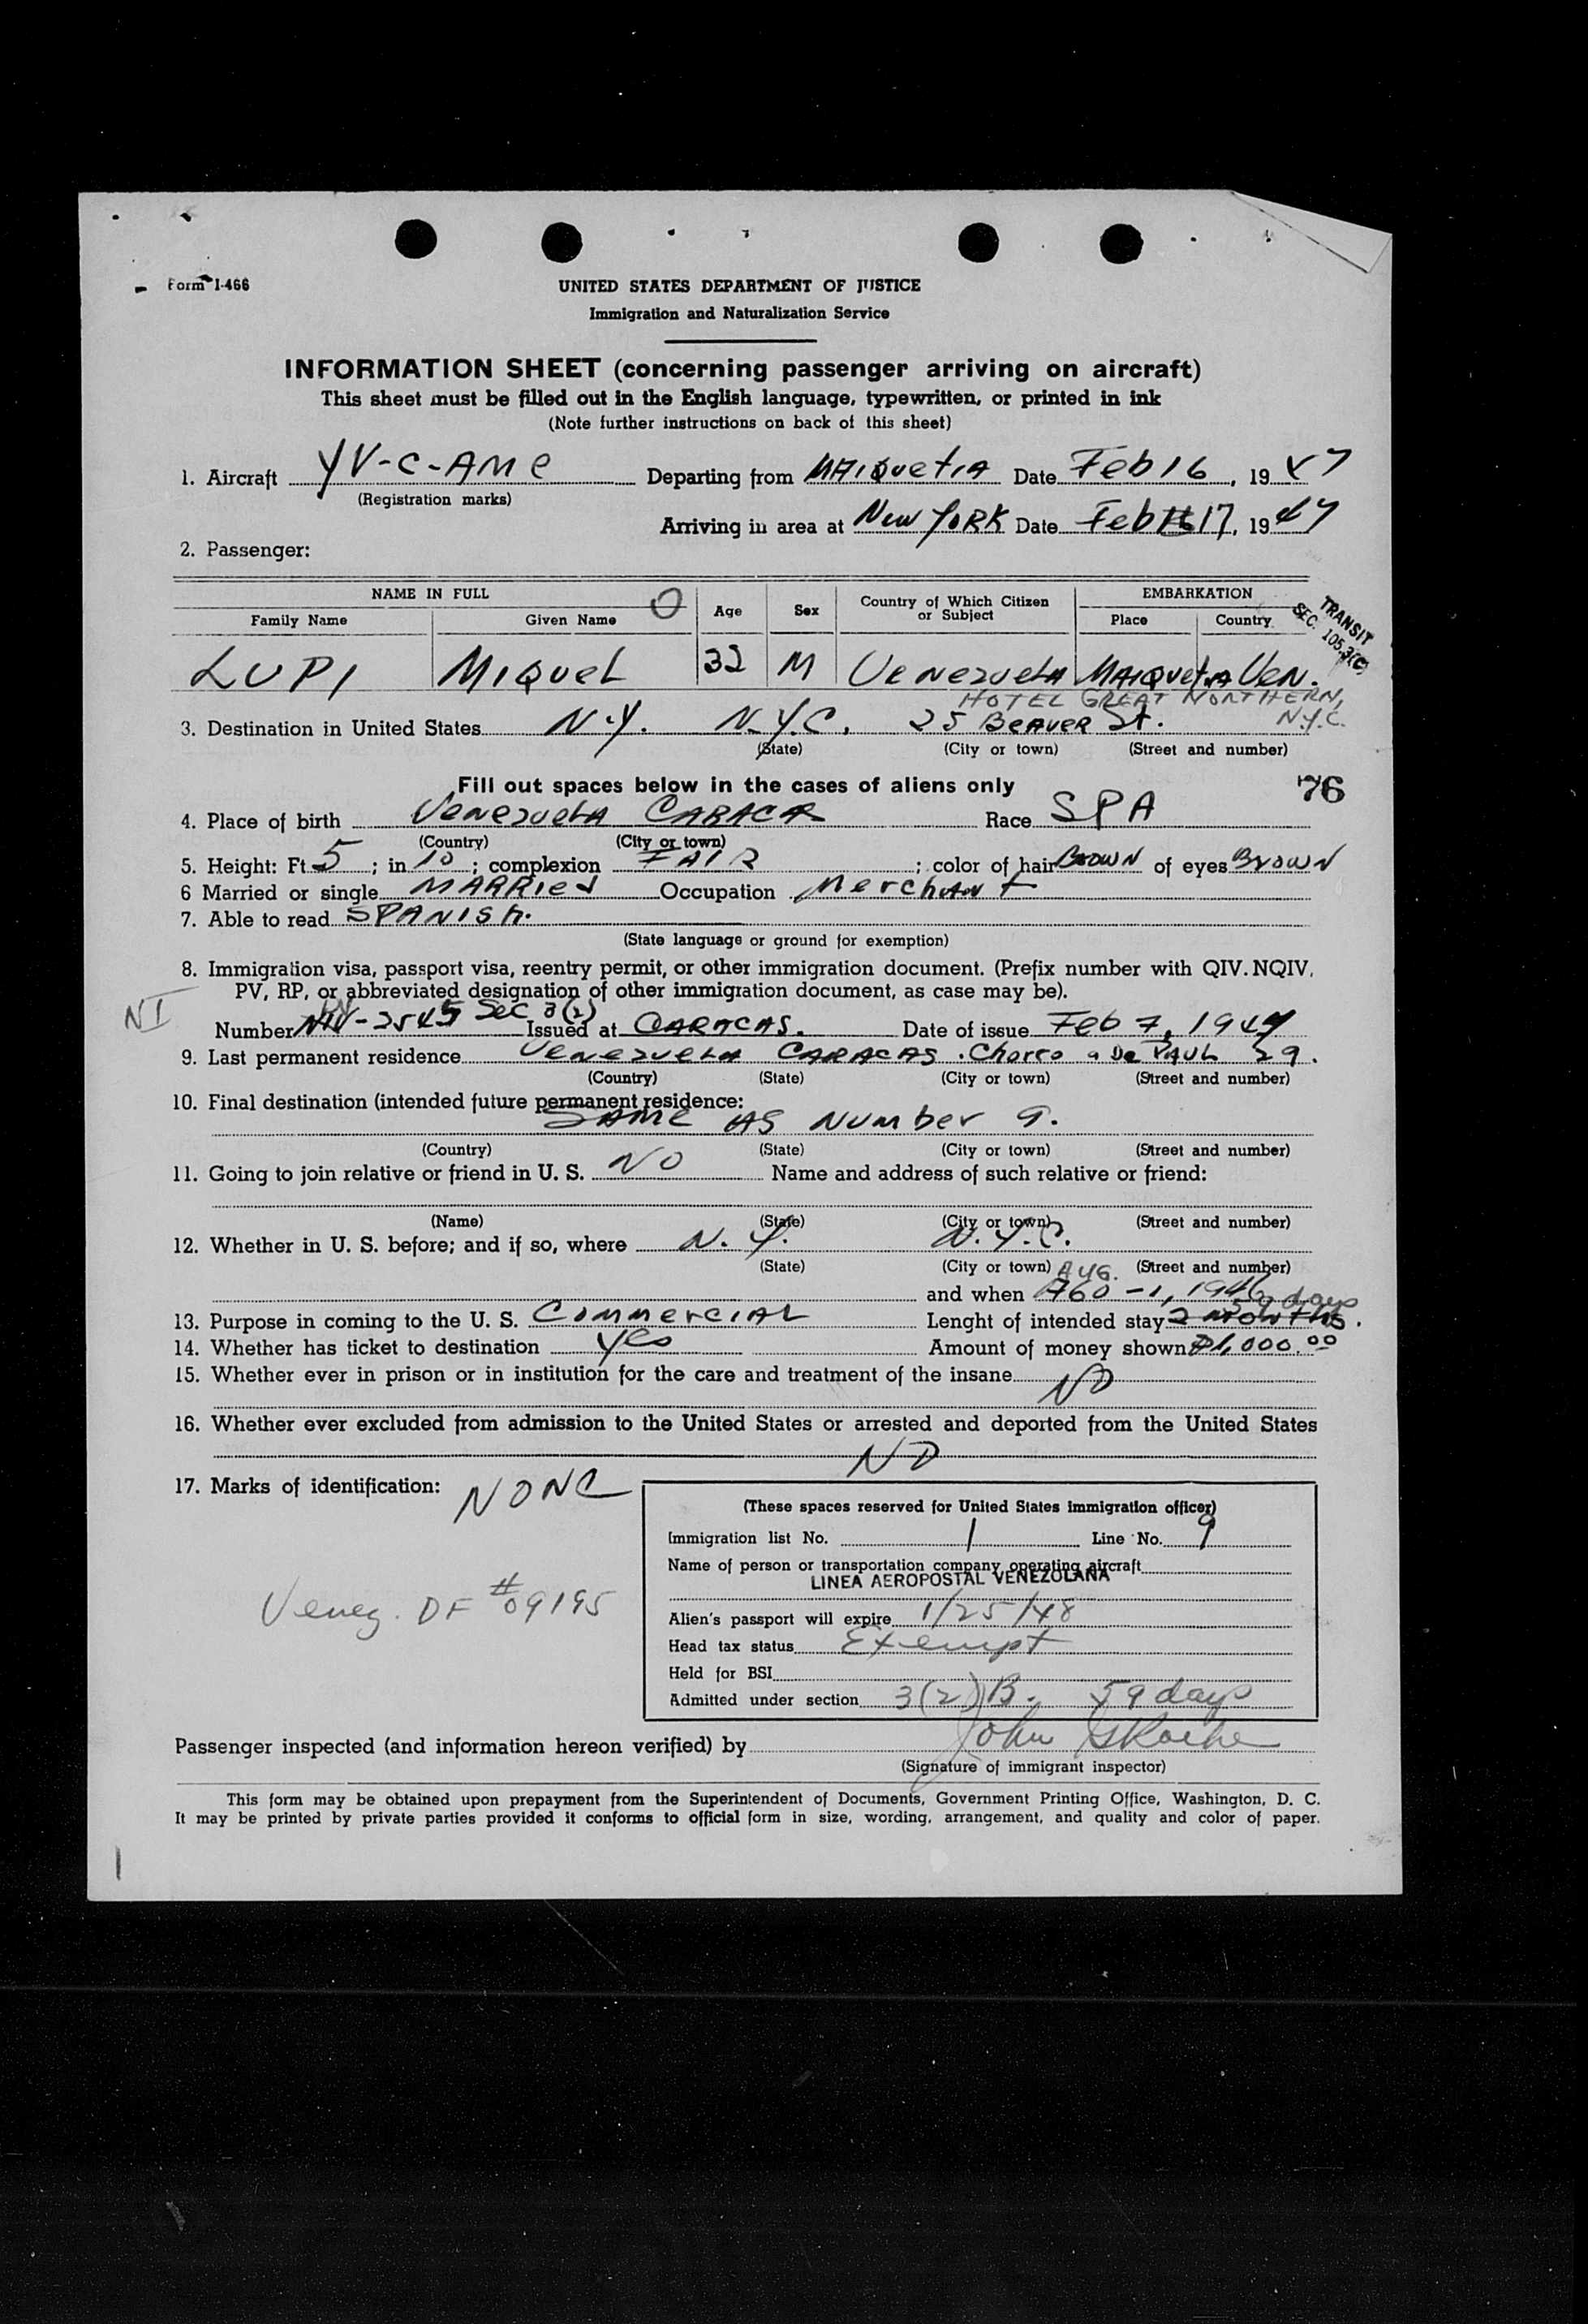 Form I-466
UNITED STATES DEPARTMENT OF JUSTICE
Immigration and Naturalization Service
INFORMATION SHEET (concerning passenger arriving on aircraft)
This sheet must be filled out in the English language, typewritten, or printed in ink
(Note further instructions on back of this sheet)
1. Aircraft YV-C-AME Departing from MAIQUETIA Date Feb 16, 1947
(Registration marks)
Arriving in area at New YORK Date Feb 17, 1947
2. Passenger:
NAME IN FULL Age Sex Country of Which Citizen or Subject EMBARKATION
Family Name Given Name Place Country
TRANSIT
SEC. 105.3(C)
LUPI MIQUEL 32 M VENEZUELA MAIQUETIA VEN.
HOTEL GREAT NORTHERN,
N.Y.C.
3. Destination in United States N.Y. N.Y.C. 25 BEAVER St.
(State) (City or town) (Street and number)
Fill out spaces below in the cases of aliens only
76
4. Place of birth Venezuela CARACA Race SPA
(Country) (City or town)
5. Height: Ft 5 ; in 10 ; complexion FAIR ; color of hair BROWN of eyes BROWN
6 Married or single MARRIED Occupation Merchant
7. Able to read SPANISH.
(State language or ground for exemption)
8. Immigration visa, passport visa, reentry permit, or other immigration document. (Prefix number with QIV. NQIV,
PV, RP, or abbreviated designation of other immigration document, as case may be).
NI
Number 2545 Sec 3(2) Issued at CARACAS. Date of issue Feb 7, 1947
9. Last permanent residence VENEZUELA CARACAS. Chorro a De PAUL 29.
(Country) (State) (City or town) (Street and number)
10. Final destination (intended future permanent residence:
SAME AS Number 9.
(Country) (State) (City or town) (Street and number)
11. Going to join relative or friend in U. S. NO Name and address of such relative or friend:
(Name) (State) (City or town) (Street and number)
12. Whether in U. S. before; and if so, where N. Y. N.Y.C.
(State) (City or town) (Street and number)
AUG.
and when AGO -1, 1946
59 days
13. Purpose in coming to the U. S. COMMERCIAL Lenght of intended stay 2 MONTHS.
14. Whether has ticket to destination yes Amount of money shown $1,000.00
15. Whether ever in prison or in institution for the care and treatment of the insane NO
16. Whether ever excluded from admission to the United States or arrested and deported from the United States
NO
17. Marks of identification: NONE
(These spaces reserved for United States immigration officer)
Immigration list No. 1 Line No. 9
Name of person or transportation company operating aircraft
LINEA AEROPOSTAL VENEZOLANA
Venez. DF #09195
Alien's passport will expire 1/25/48
Head tax status Exempt
Held for BSI
Admitted under section 3(2)B. 59 days
Passenger inspected (and information hereon verified) by John
(Signature of immigrant inspector)
This form may be obtained upon prepayment from the Superintendent of Documents, Government Printing Office, Washington, D. C.
It may be printed by private parties provided it conforms to official form in size, wording, arrangement, and quality and color of paper.